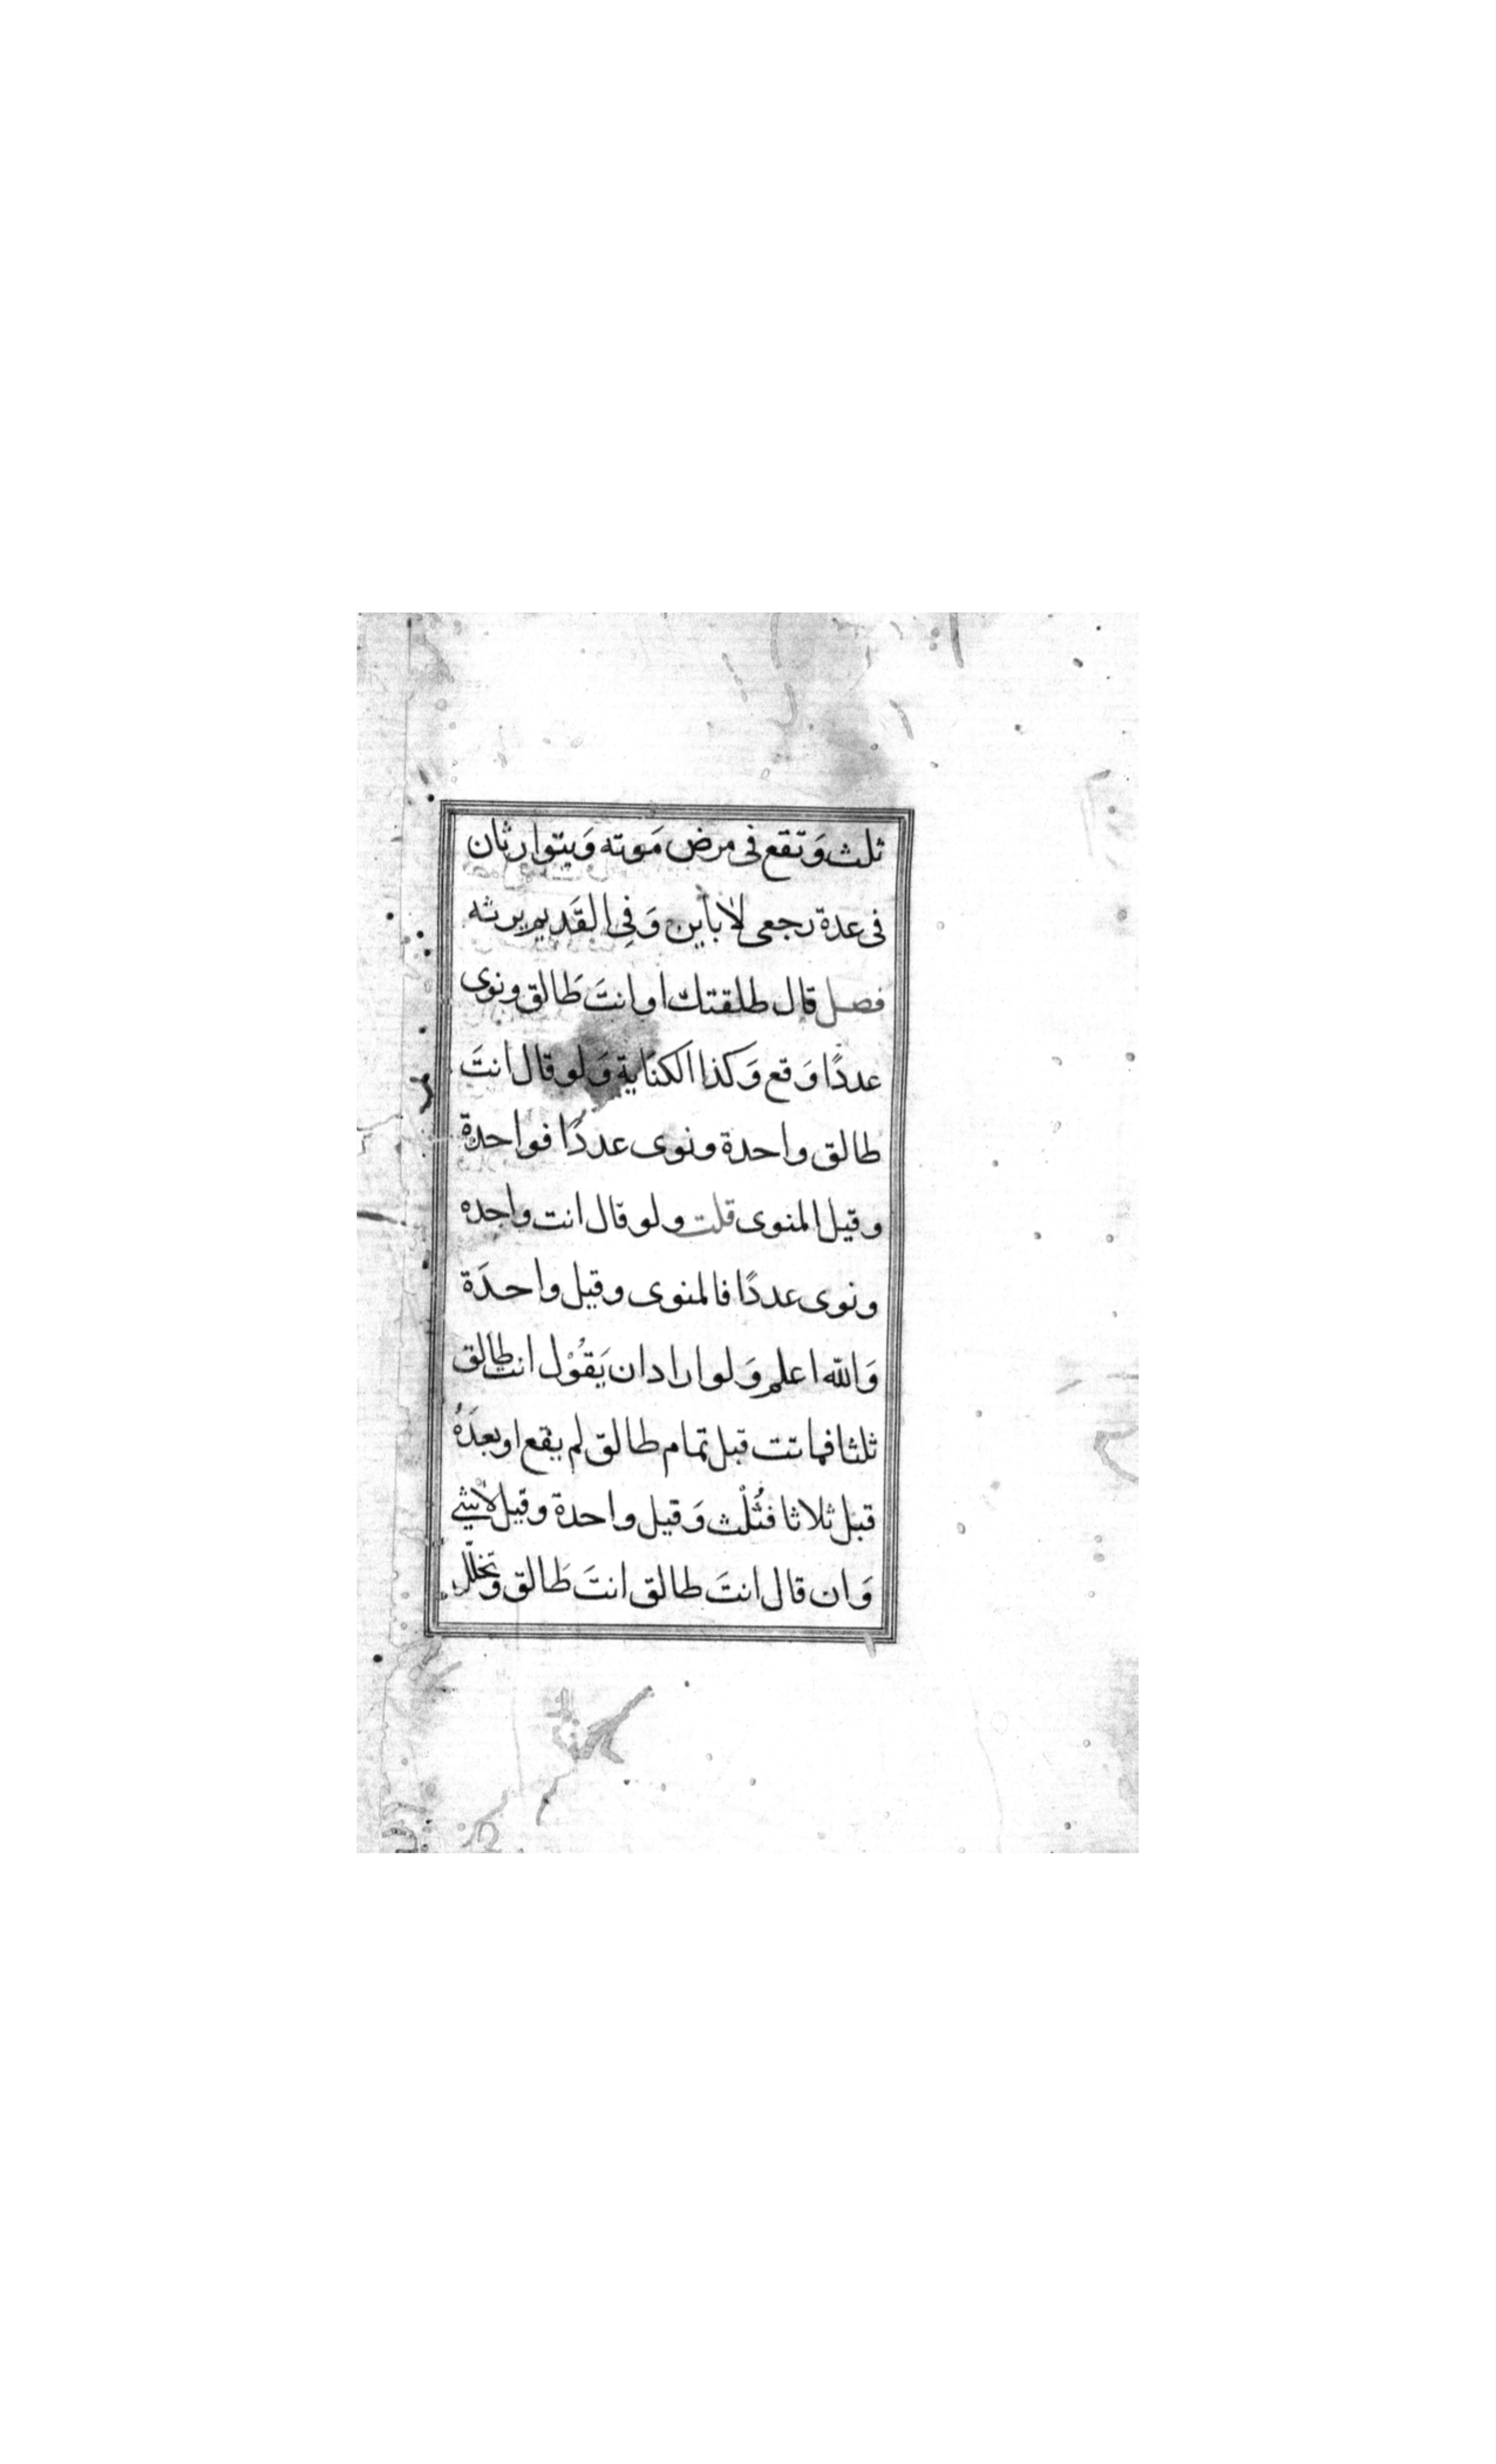 ثلث وَتقع فى مرض مَوته وَيتوارثان
فى عدة رجعى لا باين وَفِى القَديم يرثه
فصل قال طلقتك او انتَ طَالق ونوى
عددًا وَقع وَكذا الكنَاية وَلو قال انتَ
طالق واحدة ونوى عددًا فواحدة
وقيل المنوى قلت ولو قال انت واحده
ونوى عددًا فالمنوى وقيل واحدَة
وَالله اعلم وَلو اراد ان يَقُوْل انت طالق
ثلثا فماتت قبل تمام طالق لم يقع او بعدَهُ
قبل ثلاثا فثُلْث وَقيل واحدة وقيل لا شئ
وَان قال انتَ طالق انتَ طَالق وتخلّل